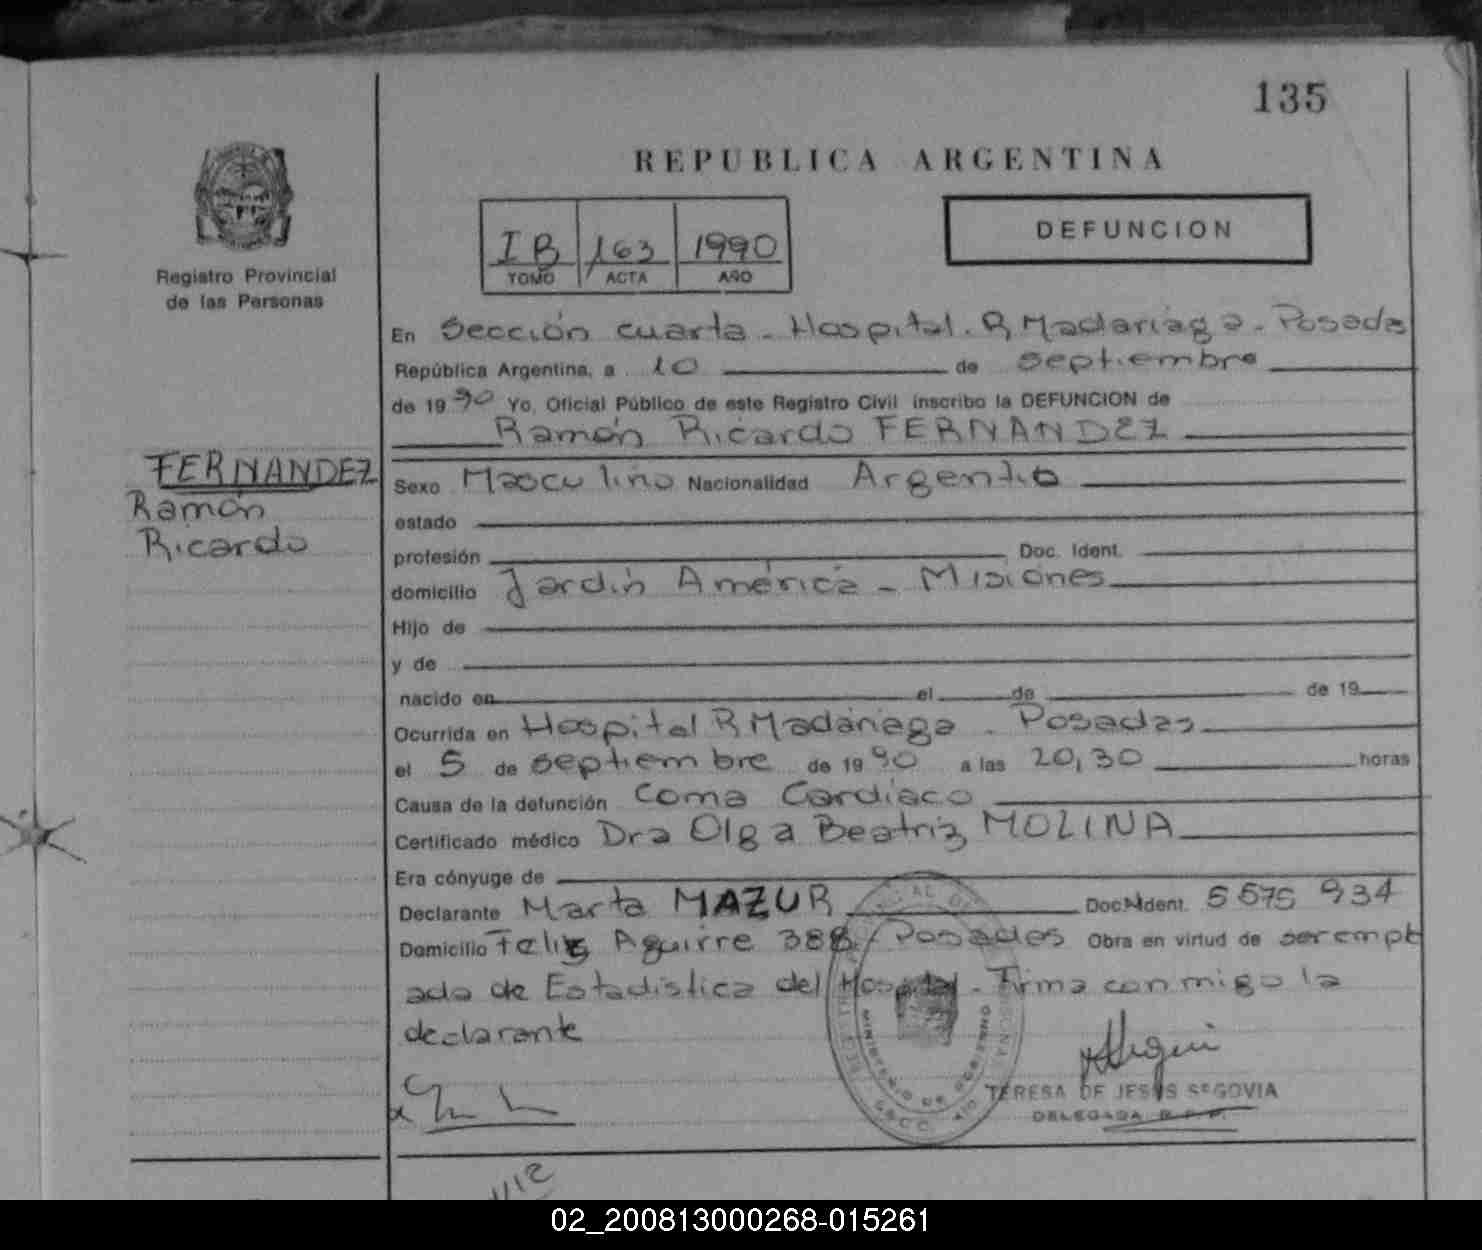 135
REPUBLICA ARGENTINA
IB 163 1990
TOMO ACTA AÑO
DEFUNCION
Registro Provincial
de las Personas
En Sección cuarta - Hospital. R Madariaga - Posadas
República Argentina, a 10 de septiembre
de 1990 Yo, Oficial Público de este Registro Civil inscribo la DEFUNCION de
Ramón Ricardo FERNANDEZ
FERNANDEZ
Ramón
Ricardo
Sexo Masculino Nacionalidad Argentio
estado
profesión Doc. Ident.
domicilio Jardín América - Misiones
Hijo de
y de
nacido en el de de 19
Ocurrida en Hospital R Madariaga - Posadas
el 5 de septiembre de 1990 a las 20,30 horas
Causa de la defunción Coma Cardíaco
Certificado médico Dra Olga Beatriz MOLINA
Era cónyuge de
Declarante Marta MAZUR Doc. Ident. 5575 934
Domicilio Feliz Aguirre 388 - Posadas Obra en virtud de ser empl
ada de Estadistica del Hospital - Firma conmigo la
declarante
MINISTERIO DE GOBIERNO
TERESA DE JESUS SEGOVIA
DELEGADA R.P.P.
02_200813000268-015261